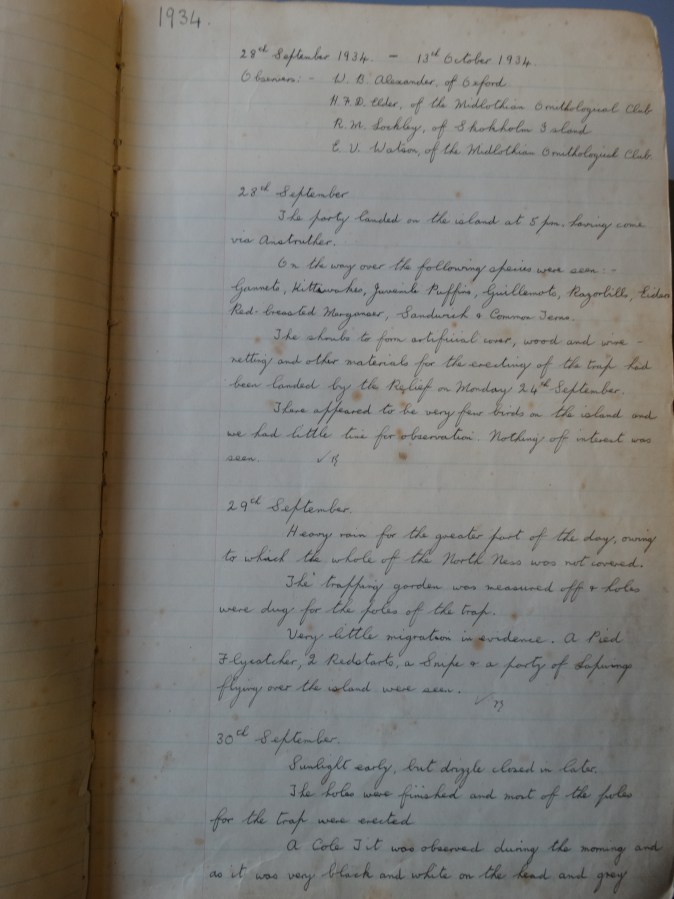 1934.
28th September 1934. - 13th October 1934.
Observers:- W. B. Alexander, of Oxford.
H. F. D. Elder, of the Midlothian Ornithological Club
R. M. Lockley, of Skokholm Island
E. V. Watson, of the Midlothian Ornithological Club.
28th September
The party landed on the island at 5 pm. having come
via Anstruther.
On the way over the following species were seen:-
Gannets, Kittiwakes, Juvenile Puffins, Guillemots, Razorbills, Eiders
Red-breasted Merganser, Sandwich & Common Terns.
The shrubs to form artificial cover, wood and wire-
netting and other materials for the erecting of the trap had
been landed by the Relief on Monday 24th September.
There appeared to be very few birds on the island and
we had little time for observation. Nothing of interest was
seen. ✓
29th September.
Heavy rain for the greater part of the day, owing
to which the whole of the North Ness was not covered.
The trapping garden was measured off & holes
were dug for the poles of the trap.
Very little migration in evidence. A Pied
Flycatcher, 2 Redstarts, a Snipe & a party of Lapwings
flying over the island were seen. ✓
30th September.
Sunlight early, but drizzle closed in later.
The holes were finished and most of the poles
for the trap were erected
A Cole Tit was observed during the morning and
as it was very black and white on the head and grey